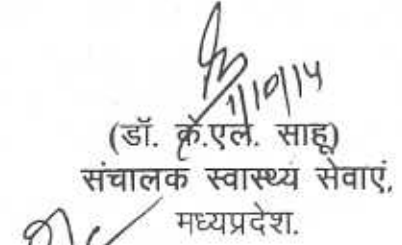 1/10/14
(डॉ. के.एल. साहू)
संचालक स्वास्थ्य सेवाएं,
मध्यप्रदेश.